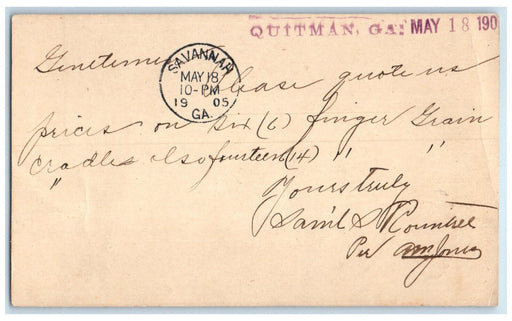 QUITMAN, GA. MAY 18 190
SAVANNAH
MAY 18
10-PM
1905
GA.
Gentlemen Please quote us
prices on six (6) finger Grain
Cradles also fourteen (14) " "
"
Yours truly
Sam'l S Rountree
Per Jones